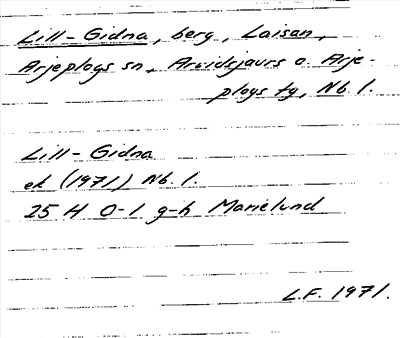 Lill-Gidna, berg, Laisan,
Arjeplogs sn, Arvidsjaurs o. Arje-
plogs tg, Nb. l.
Lill-Gidna
ek (1971) Nb. l.
25 H 0-1 g-h Marielund
L.F. 1971.